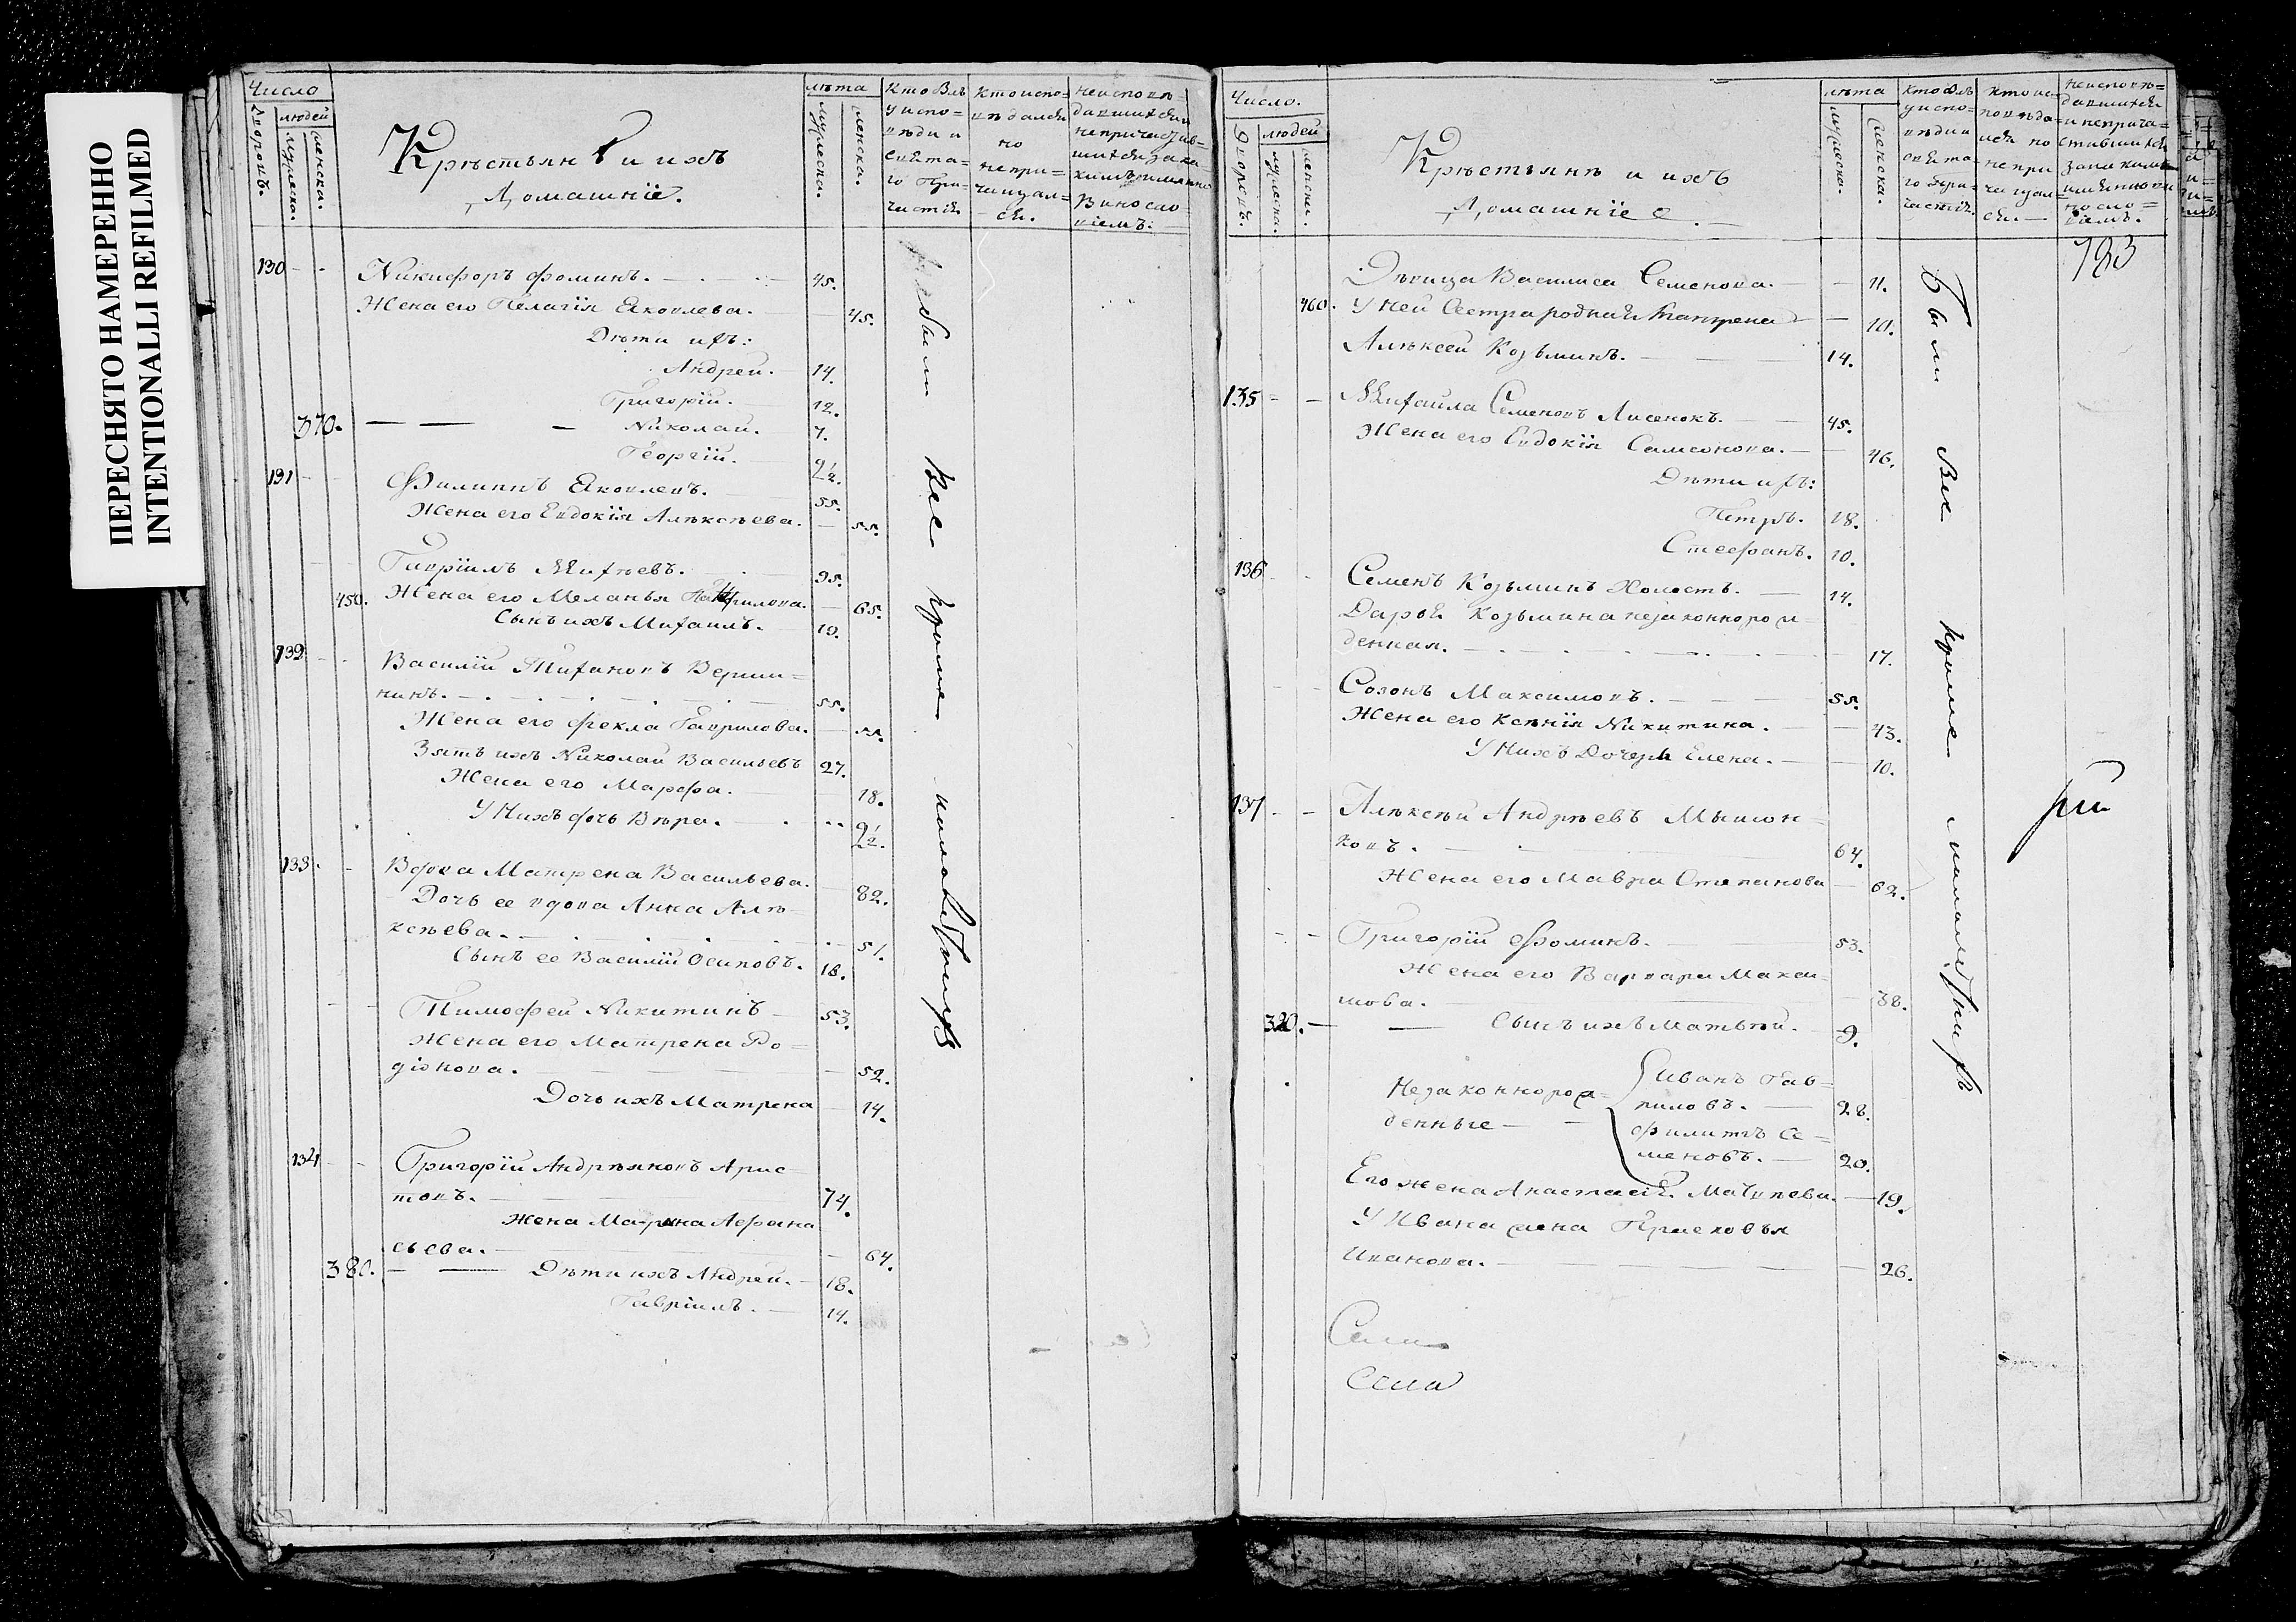 ПЕРЕСНЯТО НАМЕРЕННО
INTENTIONALLI REFILMED
Число
дворовъ.
людей
мужеска.
женска.
Крестьяне и ихъ
домашніе.
лѣта
мужеска.
женска.
Кто былъ
у испо-
вѣди и
свята-
го При-
частія
Кто испо-
вѣдался
но
непри-
чащал-
ся.
130 Никифоръ Фоминъ. 45.
Жена его Пелагія Яковлева. 45.
Дѣти ихъ:
Андрей. 14.
Григорій. 12.
370. Николай. 7.
Георгій. 2½.
131 Филиппъ Яковлевъ. 55.
Жена его Евдокія Алексѣева. 55.
Гавріилъ Михѣевъ. 35.
450. Жена его Меланья 65.
Сынъ ихъ Михаилъ. 19.
132 Василій Тихановъ Верши-
нинъ. 55.
Жена его Фекла Гаврилова. 55.
Зять ихъ Николай Васильевъ 27.
Жена его Марфа. 18.
У Нихъ дочь Вѣра. 2½.
133. Вдова Матрена Васильева. 82.
Дочь ее вдова Анна Але-
ксѣева. 51.
Сынъ ее Василій Осиповъ. 18.
Тимофей Никитинъ 53.
Жена его Матрена Ро-
діонова. 52.
Дочь ихъ Матрена 14.
134 Григорій Андреяновъ Арис-
товъ. 74.
Жена Марина Афана
сьева. 64.
380. Дѣти ихъ Андрей. 18.
Гавріилъ. 14.
были все кроме малолѣтнихъ
Число.
дворовъ.
людей
мужеска.
женски.
Крестьяне и ихъ
домашніе
лѣта
мужеска.
женска.
183
Дѣвица Василиса Семенова. 11.
460. У ней Сестра родная Матрена 10.
Алексей Козьминъ. 14.
135 Михаила Семеновъ Лисенокъ. 45.
Жена его Евдокія Самсонова. 46.
Дѣти ихъ:
Петръ. 18.
Стефанъ. 10.
136 Семенъ Козьминъ Холостъ. 14.
Дарья Козьмина незаконнорож-
денная. 17.
Созонъ Максимовъ. 55.
Жена его Ксенія Никитина. 43.
У Нихъ Дочерь Елена. 10.
137 Алексѣй Андреевъ Мышон-
ковъ. 64.
Жена его Мавра Степанова 62.
Григорій Фоминъ. 53.
Жена его Варвара Макси-
мова. 38.
390. Сынъ ихъ Матвѣй. 9.
Незаконнорож-
денные
Иванъ Гав-
риловъ. 28.
Филиппъ Се-
меновъ. 20.
Его жена Анастасія Матвѣева. 19.
У Ивана жена Прасковья
Иванова. 26.
Были все кроме малолѣтнихъ